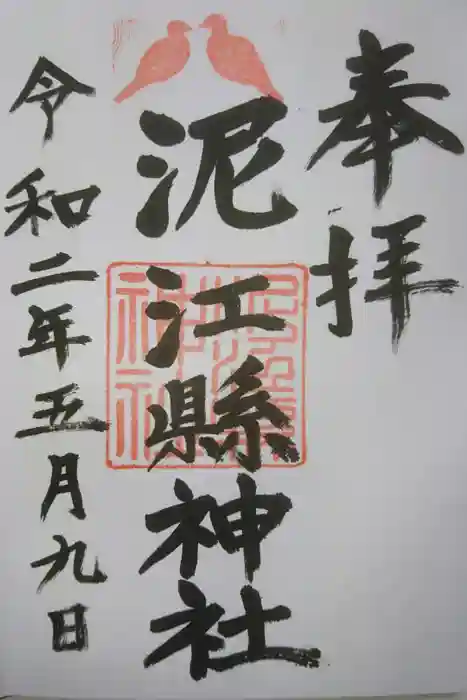 奉拝
泥江縣神社
令和二年五月九日